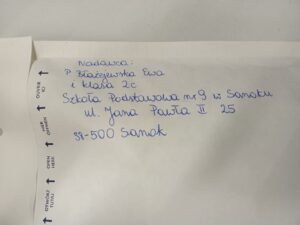 Nadawca:
P. Błażejewska Ewa
i klasa 2c
Szkoła Podstawowa nr 9 w Sanoku
ul. Jana Pawła II 25
38-500 Sanok
OTWÓRZ TUTAJ
OPEN HERE